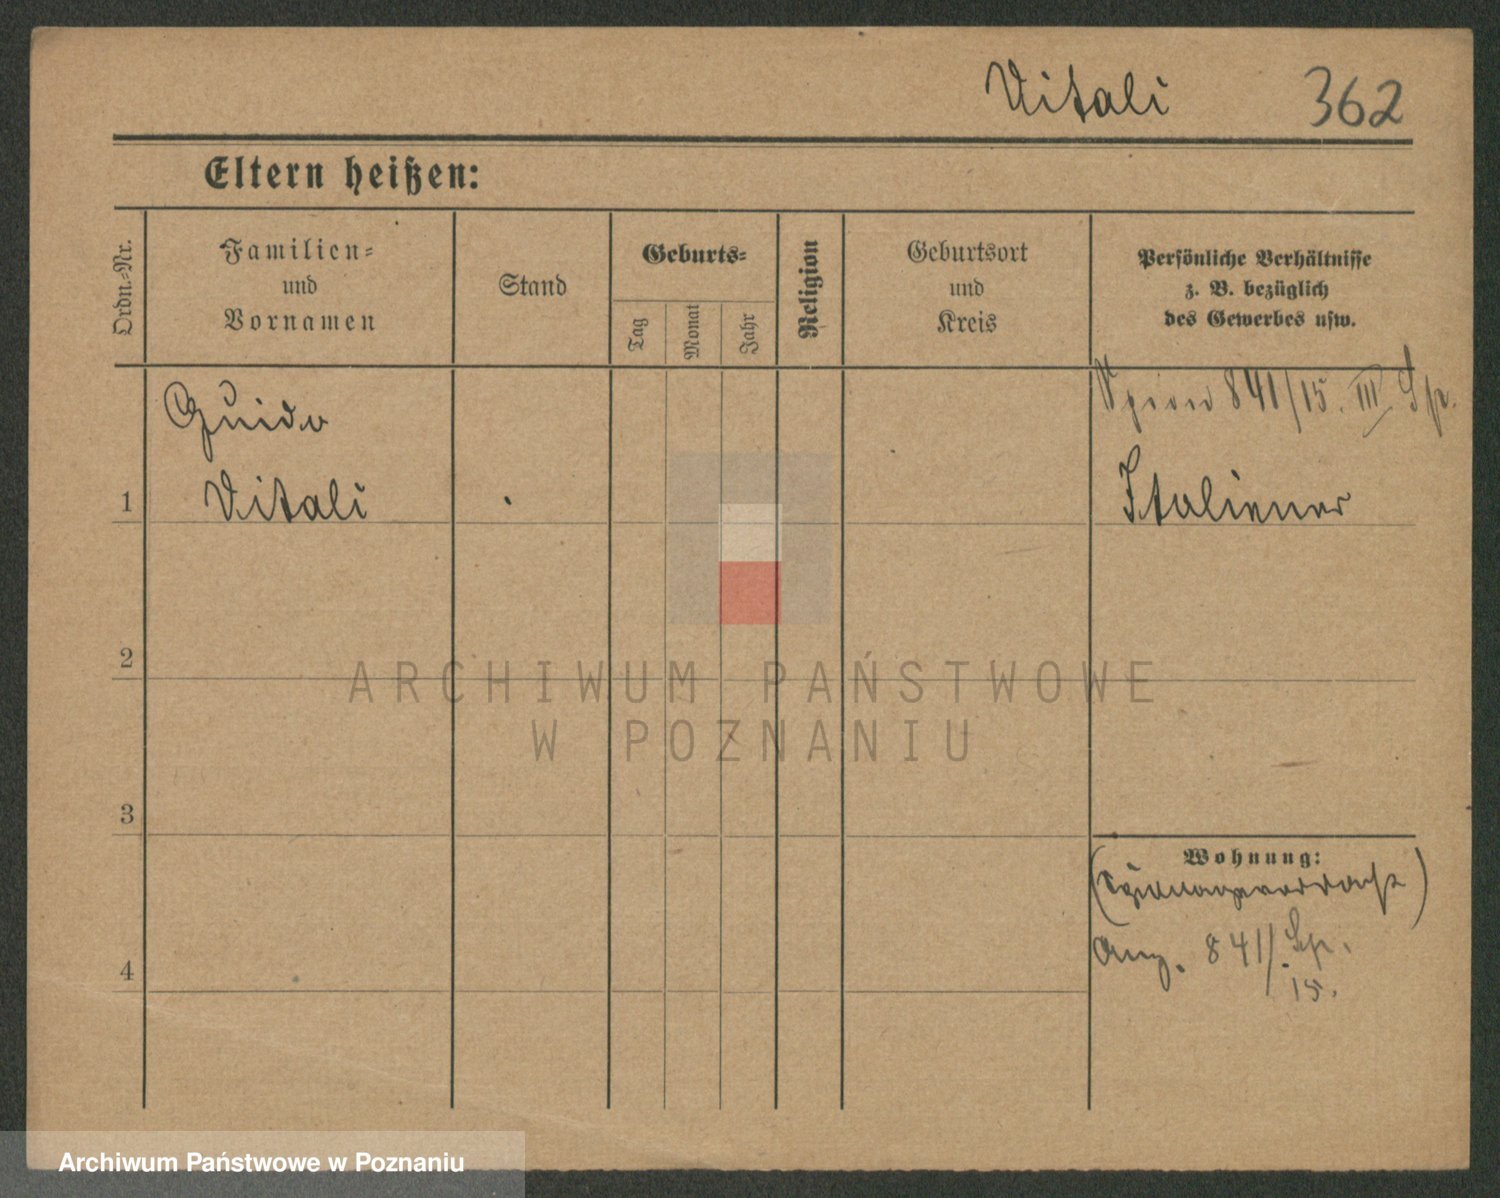 Vitali 362
Eltern heißen:
Ordn.-Nr.
Familien-
und
Vornamen
Stand
Geburts-
Tag
Monat
Jahr
Religion
Geburtsort
und
Kreis
Persönliche Verhältnisse
z. B. bezüglich
des Gewerbes usw.
Spion 841/15. III Sp.
Guido
1 Vitali Italiener
2
ARCHIWUM PAŃSTWOWE
W POZNANIU
3
Wohnung:
(Spionageverdacht)
4
Ang. 841/Sp.
15.
Archiwum Państwowe w Poznaniu